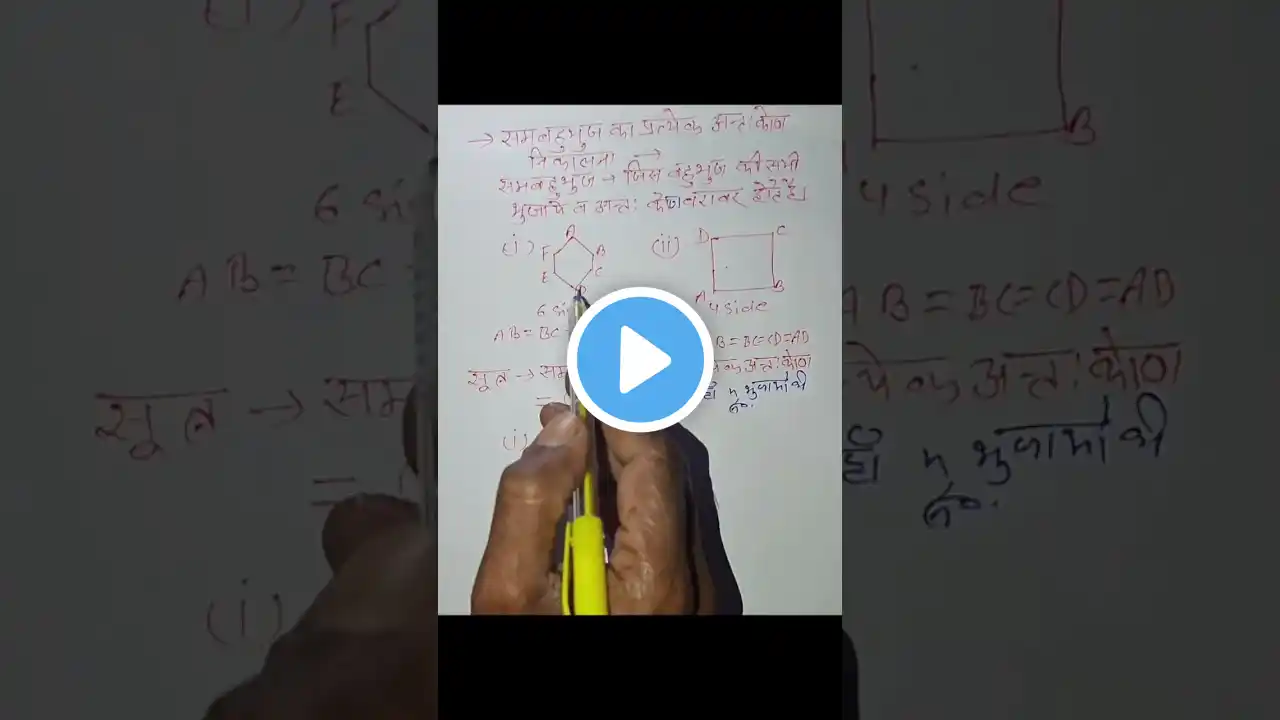 → समबहुभुज का प्रत्येक अन्तःकोण
निकालना →
समबहुभुज → जिस बहुभुज की सभी
भुजाये व अन्तः कोण बराबर होते है।
(i) A B C D E F (ii) D C A B
6 4 side
AB = BC = B = BC = CD = AD
सूत्र → सम अन्तःकोण
= हाँ n भुजाओं की
सं०
(i)